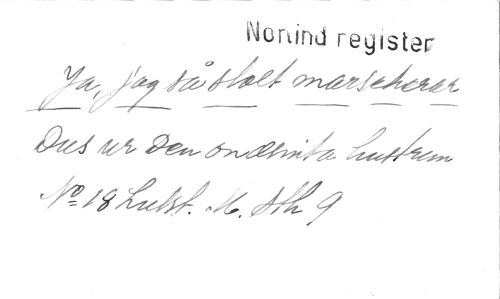 Nomind register
Ja, jag så stolt marscherar
Duo ur Den ondsinta hustrun
No 18 Lutst. M. Sth 9